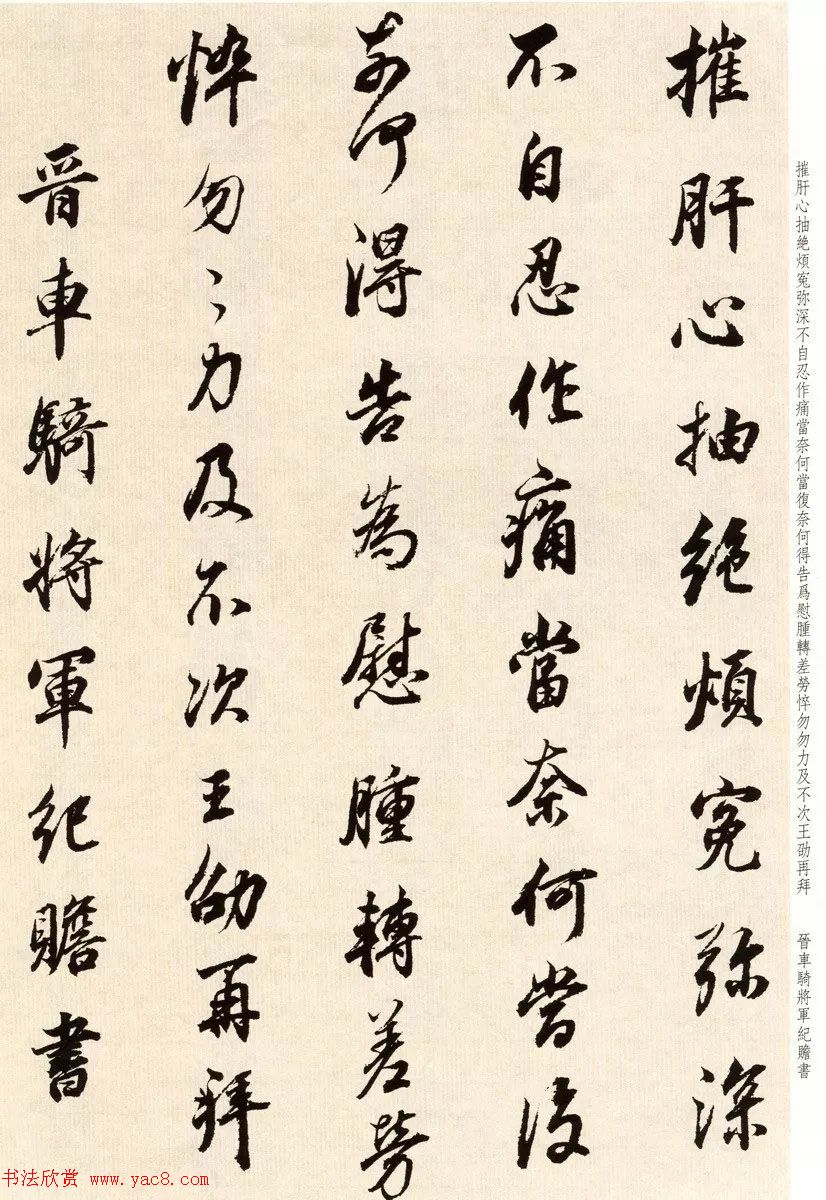 摧肝心抽絶煩冤弥深
不自忍作痛當奈何當復
奈何得告為慰腫轉差勞
悴勿〻力及不次王劭再拜
晋車騎將軍紀瞻書
摧肝心抽絶煩冤弥深不自忍作痛當奈何當復奈何得告爲慰腫轉差勞悴勿勿力及不次王劭再拜 晉車騎將軍紀瞻書
书法欣赏 www.yac8.com